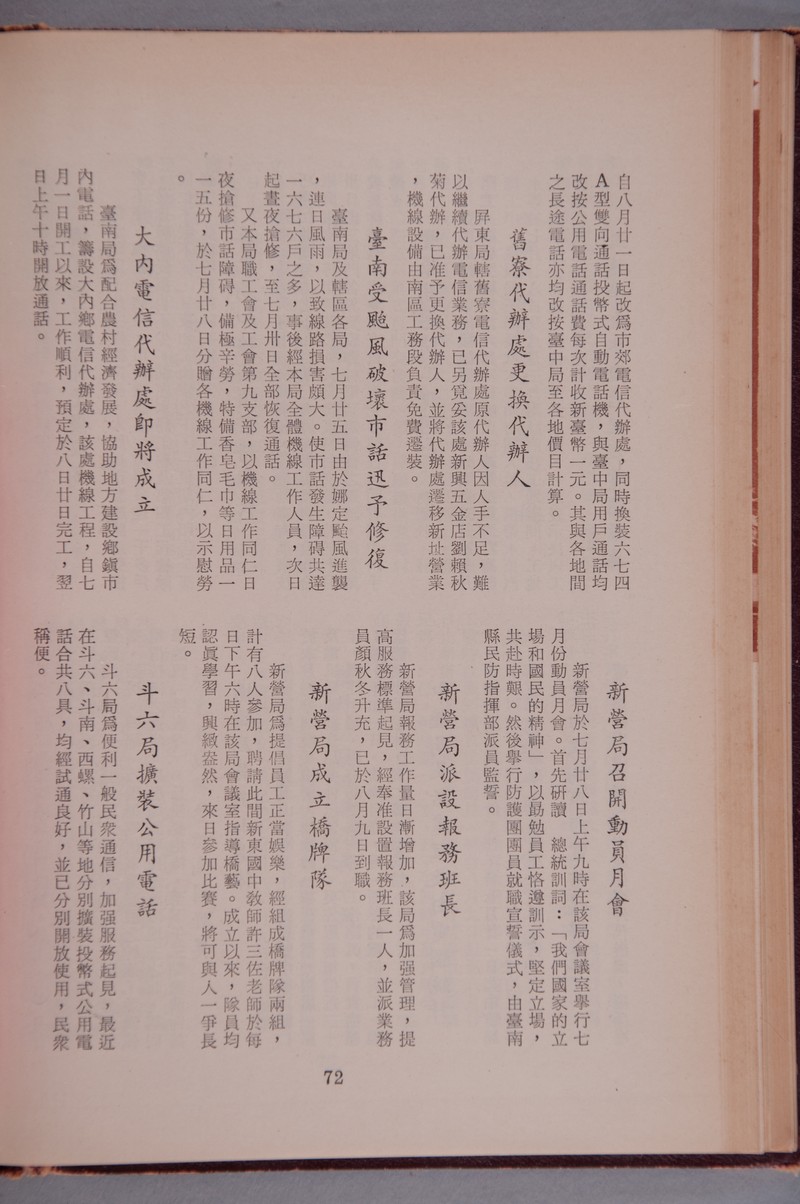 自八月廿一日起改爲市郊電信代辦處，同時換裝六七四
A型雙向通話投幣式自動電話機，與臺中局用戶通話均
改按公用電話通話費每次計收新臺幣一元。其與各地間
之長途電話亦均改按臺中局至各地價目計算。
舊寮代辦處更換代辦人
屏東局轄舊寮電信代辦處原代辦人因人手不足，難
以繼續代辦電信業務，已另覓妥該處新興五金店劉賴秋
菊代辦，已准予更換代辦人，並將代辦處遷移新址營業
，機線設備由南區工務段負責免費遷裝。
臺南受颱風破壞市話迅予修復
臺南局及轄區各局，七月廿五日由於娜定颱風進襲
，連日風雨，以致線路損害頗大。使市話發生障碍共達
一六七六戶之多，事後經本局全體機線工作人員，次日
起晝夜搶修，至七月卅日全部恢復通話。
又本局職工會及工會第九支部，以機線工作同仁日
夜搶修市話障碍，備極辛勞，特備香皂毛巾等日用品一
一五份，於七月廿八日分贈各機線工作同仁，以示慰勞
。
大內電信代辦處即將成立
臺南局爲配合農村經濟發展，協助地方建設鄉鎮市
內電話，籌設大內鄉電信代辦處，該處機線工程，自七
月一日開工以來，工作順利，預定於八日廿日完工，翌
日上午十時開放通話。
新營局召開動員月會
新營局於七月廿八日上午九時在該局會議室舉行七
月份動員月會。首先研讀　總統訓詞：「我們國家的立
場和國民的精神」，以勗勉員工恪遵訓示，堅定立場，
共赴時艱。然後舉行防護團團員就職宣誓儀式，由臺南
縣民防指揮部派員監誓。
新營局派設報務班長
新營局報務工作量日漸增加，該局爲加强管理，提
高服務標準起見，經奉准設置報務班長一人，並派業務
員顏秋冬升充，已於八月九日到職。
新營局成立橋牌隊
新營局爲提倡員工正當娛樂，經組成橋牌隊兩組，
計有八人參加，聘請此間新東國中教師許三佐老師於每
日下午六時在該局會議室指導橋藝。成立以來，隊員均
認眞學習，興緻盎然，來日參加比賽，將可與人一爭長
短。
斗六局擴裝公用電話
斗六局爲便利一般民衆通信，加强服務起見，最近
在斗六、斗南、西螺、竹山等地分別擴裝投幣式公用電
話合共八具，均經試通良好，並已分別開放使用，民衆
稱便。
72